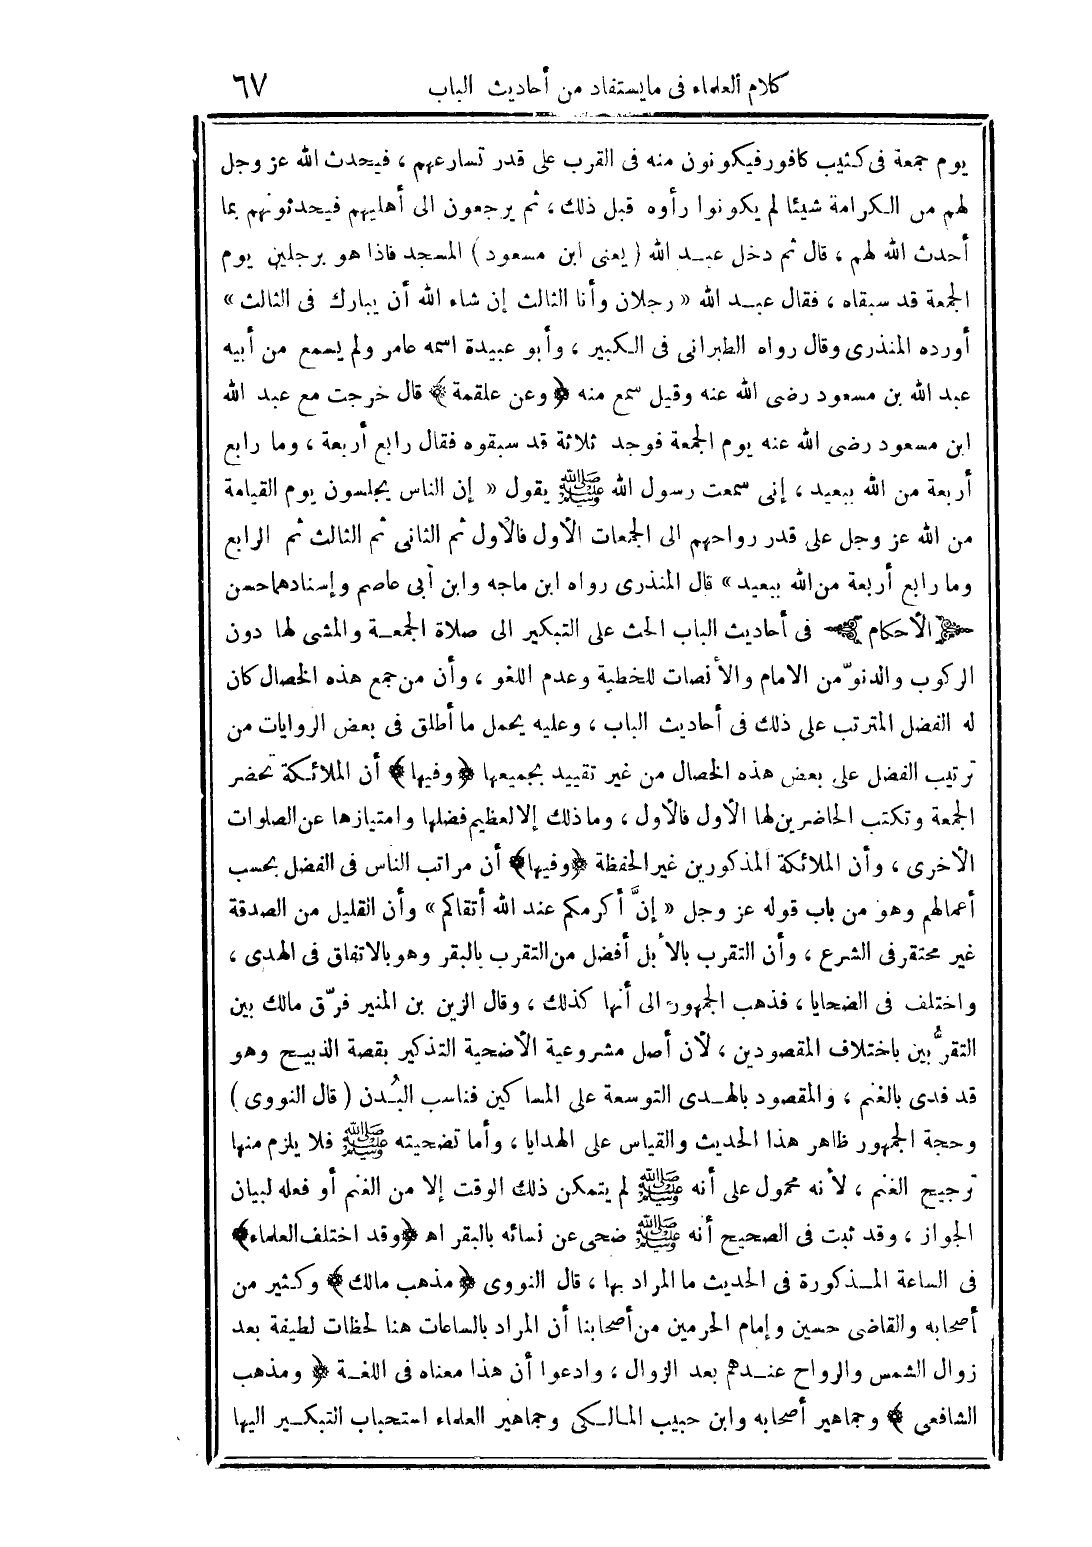 كلام العلماء فى ما يستفاد من أحاديث الباب ٦٧
يوم جمعة فى كثيب كافور فيكونون منه فى القرب على قدر تسارعهم ، فيحدث الله عز وجل
لهم من الكرامة شيئا لم يكونوا رأوه قبل ذلك ، ثم يرجعون الى أهليهم فيحدثونهم بما
أحدث الله لهم ، قال ثم دخل عبد الله ( يعنى ابن مسعود ) المسجد فاذا هو برجلين يوم
الجمعة قد سبقاه ، فقال عبد الله « رجلان وأنا الثالث إن شاء الله أن يبارك فى الثالث »
أورده المنذرى وقال رواه الطبرانى فى الكبير ، وأبو عبيدة اسمه عامر ولم يسمع من أبيه
عبد الله بن مسعود رضى الله عنه وقيل سمع منه ﴿ وعن علقمة ﴾ قال خرجت مع عبد الله
ابن مسعود رضى الله عنه يوم الجمعة فوجد ثلاثة قد سبقوه فقال رابع أربعة ، وما رابع
أربعة من الله ببعيد ، إنى سمعت رسول الله ﷺ يقول « إن الناس يجلسون يوم القيامة
من الله عز وجل على قدر رواحهم الى الجمعات الأول فالأول ثم الثانى ثم الثالث ثم الرابع
وما رابع أربعة من الله ببعيد » قال المنذرى رواه ابن ماجه وابن أبى عاصم وإسنادهما حسن
﴿ الأحكام ﴾ فى أحاديث الباب الحث على التبكير الى صلاة الجمعة والمشى لها دون
الركوب والدنوّ من الامام والأنصات للخطبة وعدم اللغو ، وأن من جمع هذه الخصال كان
له الفضل المترتب على ذلك فى أحاديث الباب ، وعليه يحمل ما أطلق فى بعض الروايات من
ترتيب الفضل على بعض هذه الخصال من غير تقييد بجميعها ﴿ وفيها ﴾ أن الملائكة تحضر
الجمعة وتكتب الحاضرين لها الأول فالأول ، وما ذلك إلا لعظيم فضلها وامتيازها عن الصلوات
الأخرى ، وأن الملائكة المذكورين غير الحفظة ﴿ وفيها ﴾ أن مراتب الناس فى الفضل بحسب
أعمالهم وهو من باب قوله عز وجل « إنَّ أكرمكم عند الله أتقاكم » وأن القليل من الصدقة
غير محتقر فى الشرع ، وأن التقرب بالأبل أفضل من التقرب بالبقر وهو بالاتفاق فى الهدى ،
واختلف فى الضحايا ، فذهب الجمهور الى أنها كذلك ، وقال الزين بن المنير فرّق مالك بين
التقرُّبين باختلاف المقصودين ، لأن أصل مشروعية الأضحية التذكير بقصة الذبيح وهو
قد فدى بالغنم ، والمقصود بالهدى التوسعة على المساكين فناسب البُدن ( قال النووى )
وحجة الجمهور ظاهر هذا الحديث والقياس على الهدايا ، وأما تضحيته ﷺ فلا يلزم منها
ترجيح الغنم ، لأنه محمول على أنه ﷺ لم يتمكن ذلك الوقت إلا من الغنم أو فعله لبيان
الجواز ، وقد ثبت فى الصحيح أنه ﷺ ضحى عن نسائه بالبقر اه ﴿ وقد اختلف العلماء ﴾
فى الساعة المذكورة فى الحديث ما المراد بها ، قال النووى ﴿ مذهب مالك ﴾ وكثير من
أصحابه والقاضى حسين وإمام الحرمين من أصحابنا أن المراد بالساعات هنا لحظات لطيفة بعد
زوال الشمس والرواح عندهم بعد الزوال ، وادعوا أن هذا معناه فى اللغة ﴿ ومذهب
الشافعى ﴾ وجماهير أصحابه وابن حبيب المالكى وجماهير العلماء استحباب التبكير اليها